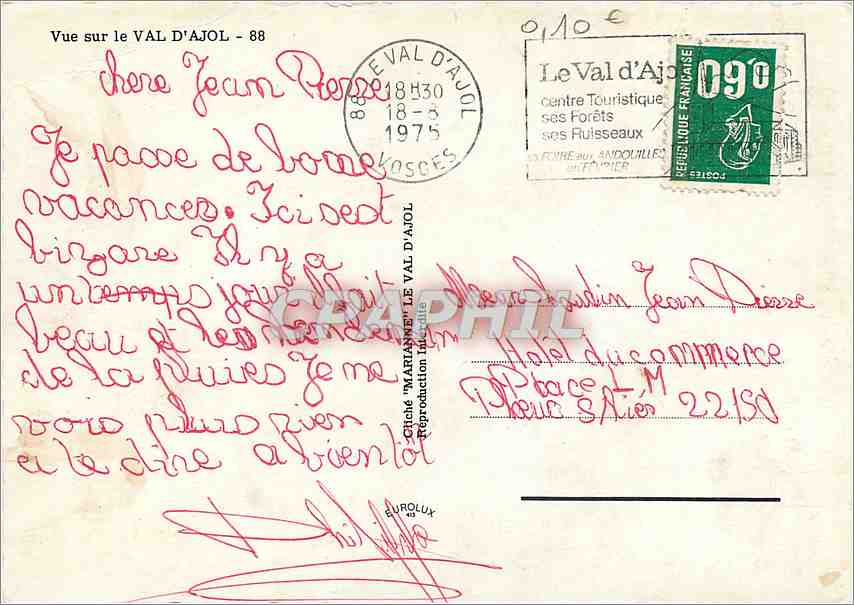 Vue sur le VAL D'AJOL - 88
0,10 €
chere Jean Pierre
Je passe de bonne
vacances. Ici sest
bizare Il y a
un temps jour il fait
beau et les
de la pluies Je ne
vois plus rien
a te dire a bientôt
Philippe
88 LE VAL D'AJOL
18H30
18-8
1975
VOSGES
Le Val d'Ajol
centre Touristique
ses Forêts
ses Ruisseaux
sa FOIRE aux ANDOUILLES
en FÉVRIER
0.60
REPUBLIQUE FRANÇAISE
POSTES
Cliché "MARIANNE" LE VAL D'AJOL
Reproduction Interdite
CPAPHIL
Jean Pierre
Hôtel du commerce
Place L M
22150
EUROLUX